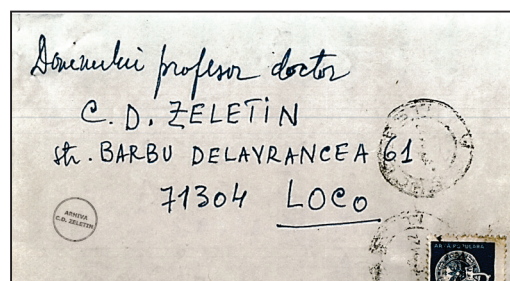 Domnului profesor doctor
C. D. ZELETIN
str. BARBU DELAVRANCEA 61
71304 LOCO
ARHIVA
C.D. ZELETIN
ARTA POPULARA